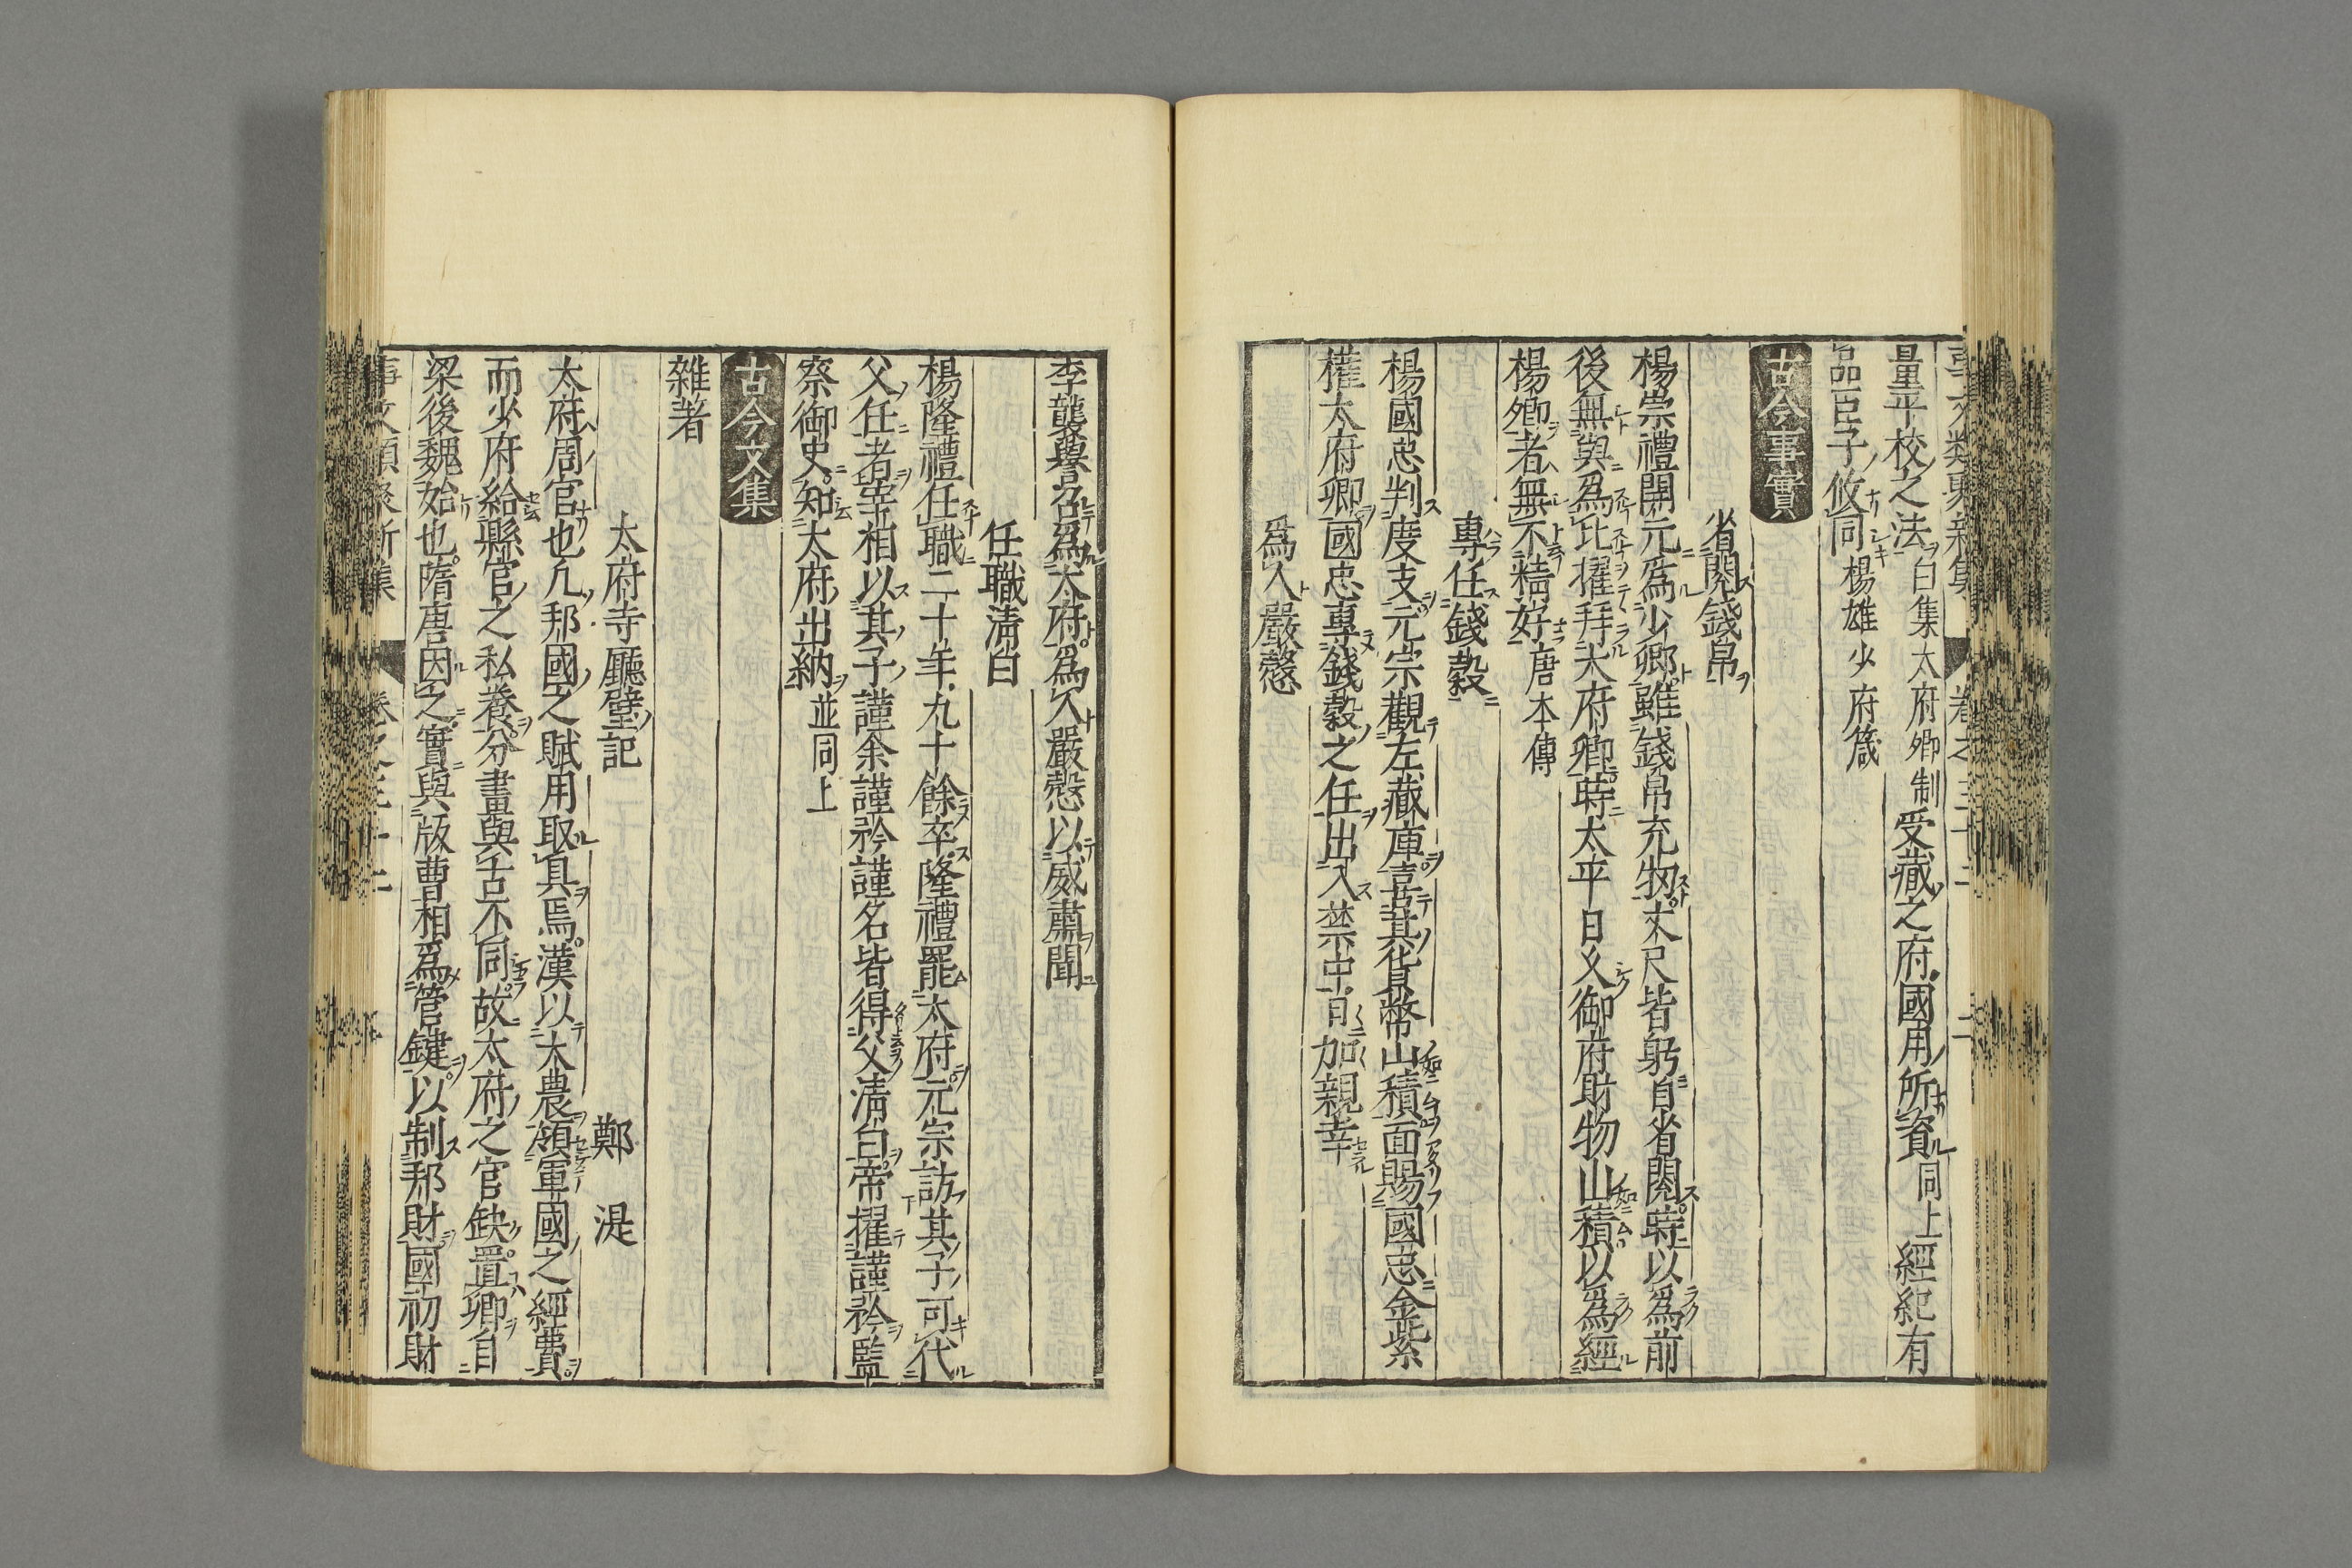 量平校之法白集太府卿制受藏之府國用所資同上經紀有
品臣子攸同楊雄少府箴
古今事實
省閱錢帛
楊崇禮開元爲少卿雖錢帛充牣丈尺皆躬自省閱時以爲前
後無與爲比擢拜太府卿時太平日久御府財物山積以爲經
楊卿者無不精好唐本傳
專任錢穀
楊國忠判度支元宗觀左藏庫喜其貨幣山積面賜國忠金紫
權太府卿國忠專錢穀之任出入禁中日加親幸
爲人嚴愨
李襲譽召爲太府爲人嚴愨以威肅聞
任職清白
楊隆禮任職二十年九十餘卒隆禮罷太府元宗訪其子可代
父任者宰相以其子謹余謹矜謹名皆得父清白帝擢謹矜監
察御史知太府出納並同上
古今文集
雜著
太府寺廳壁記 鄭湜
太府周官也凡邦國之賦用取具焉漢以大農領軍國之經費
而少府給縣官之私養分畫與古不同故太府之官缺置卿自
梁後魏始也隋唐因之實與版曹相爲管鍵以制邦財國初財